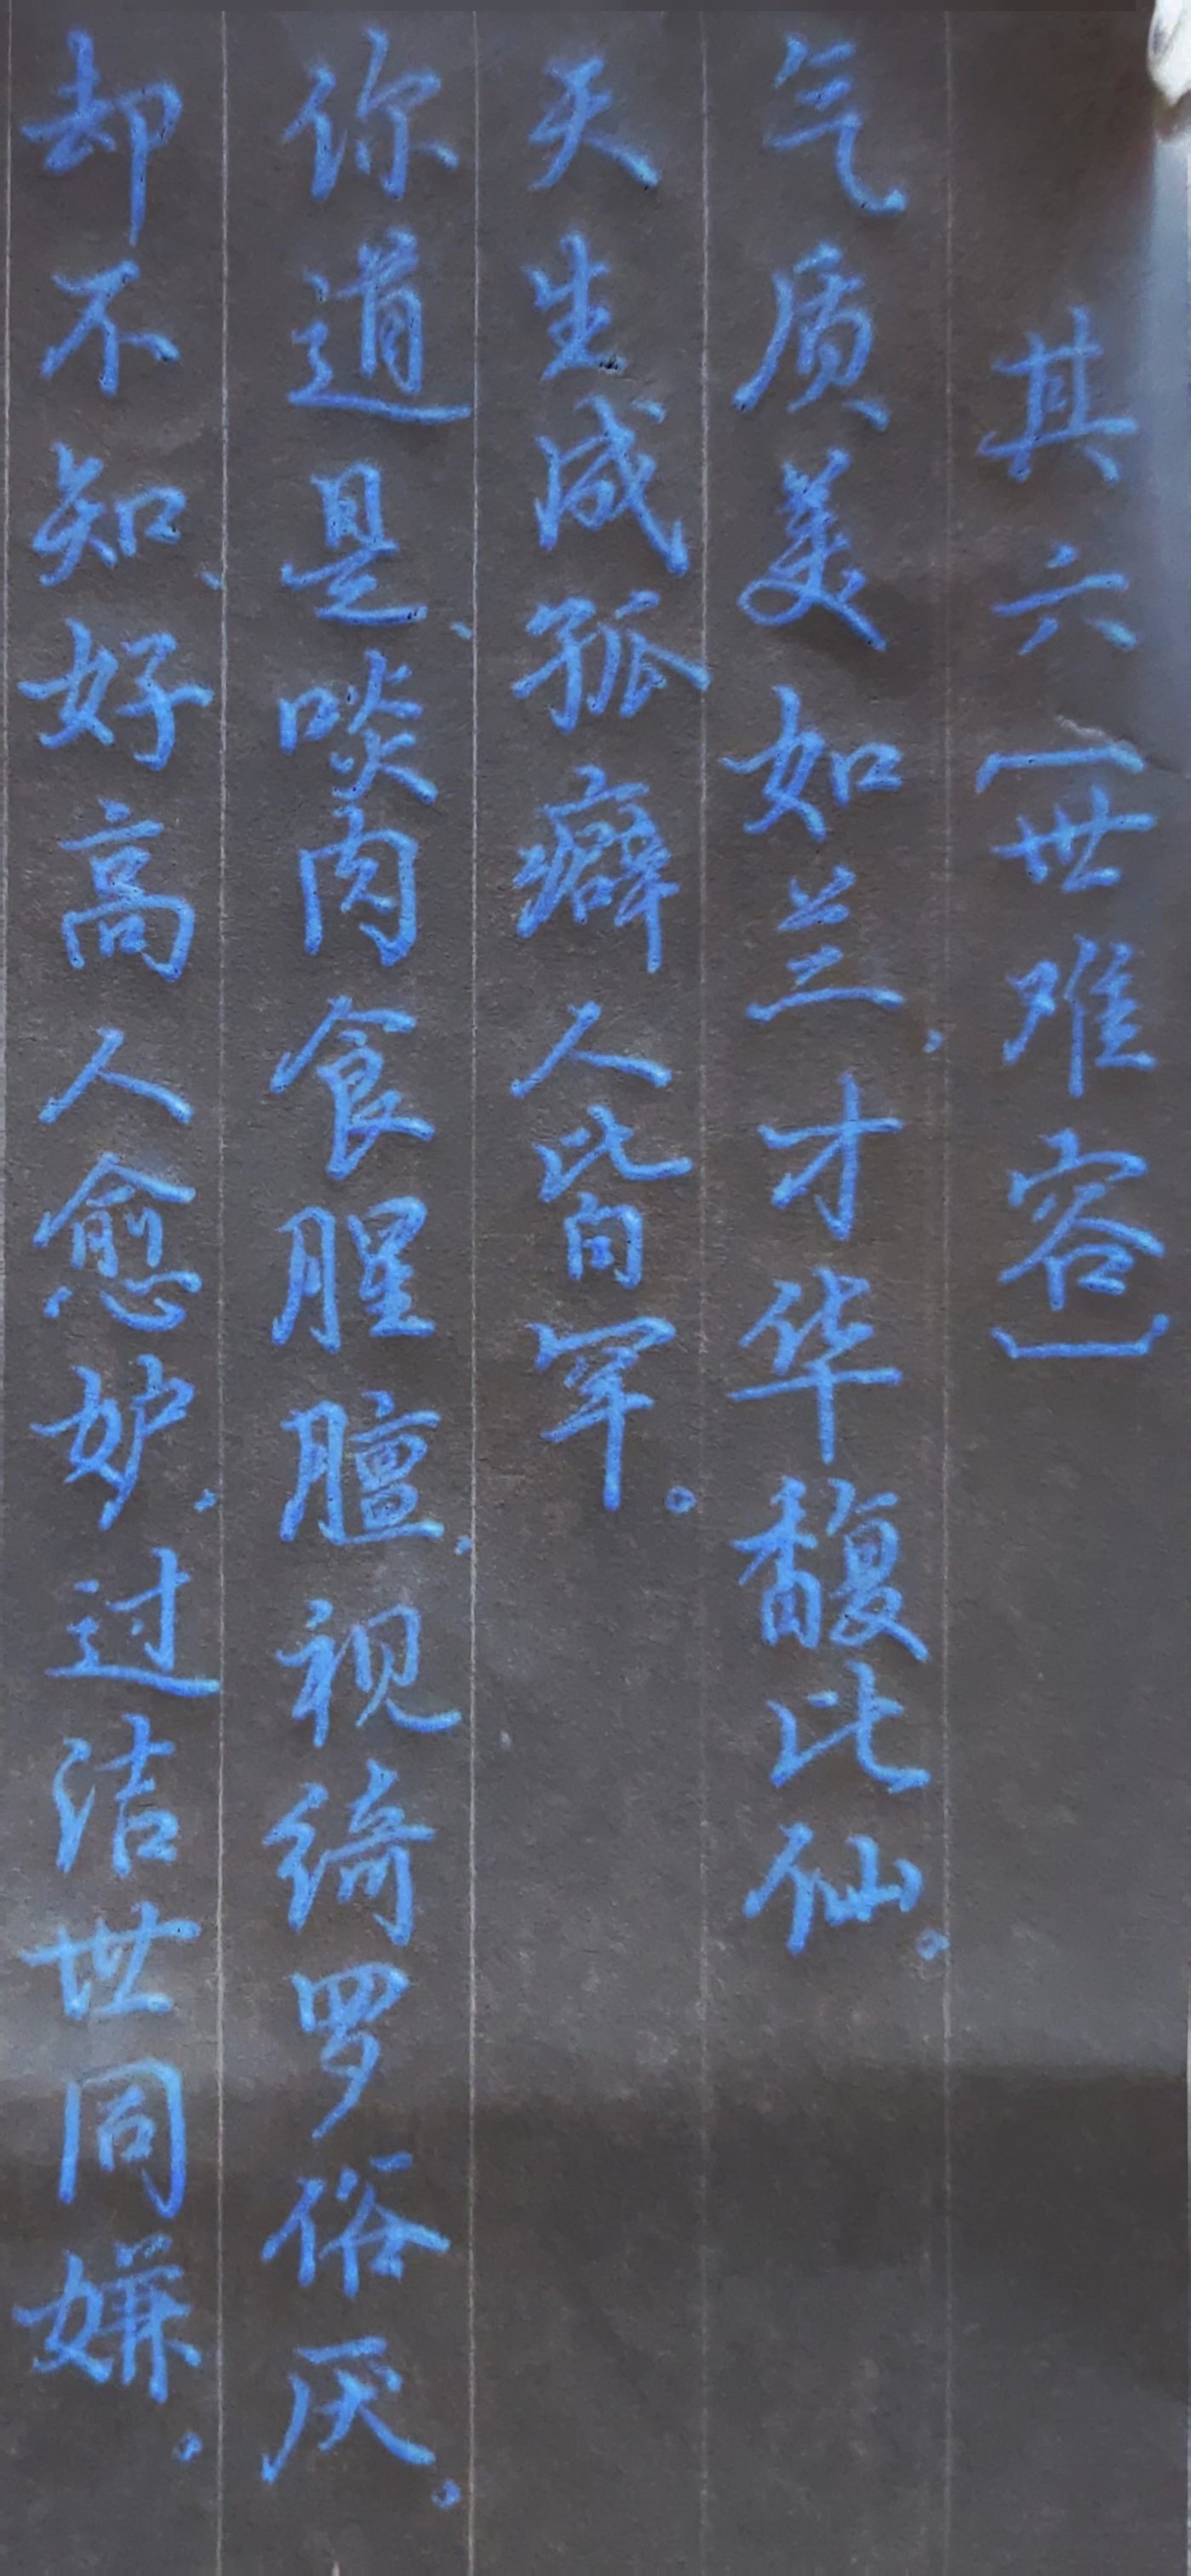 其六[世难容]
气质美如兰，才华馥比仙。
天生成孤癖人皆罕。
你道是、啖肉食腥膻，视绮罗俗厌。
却不知、好高人愈妒，过洁世同嫌。